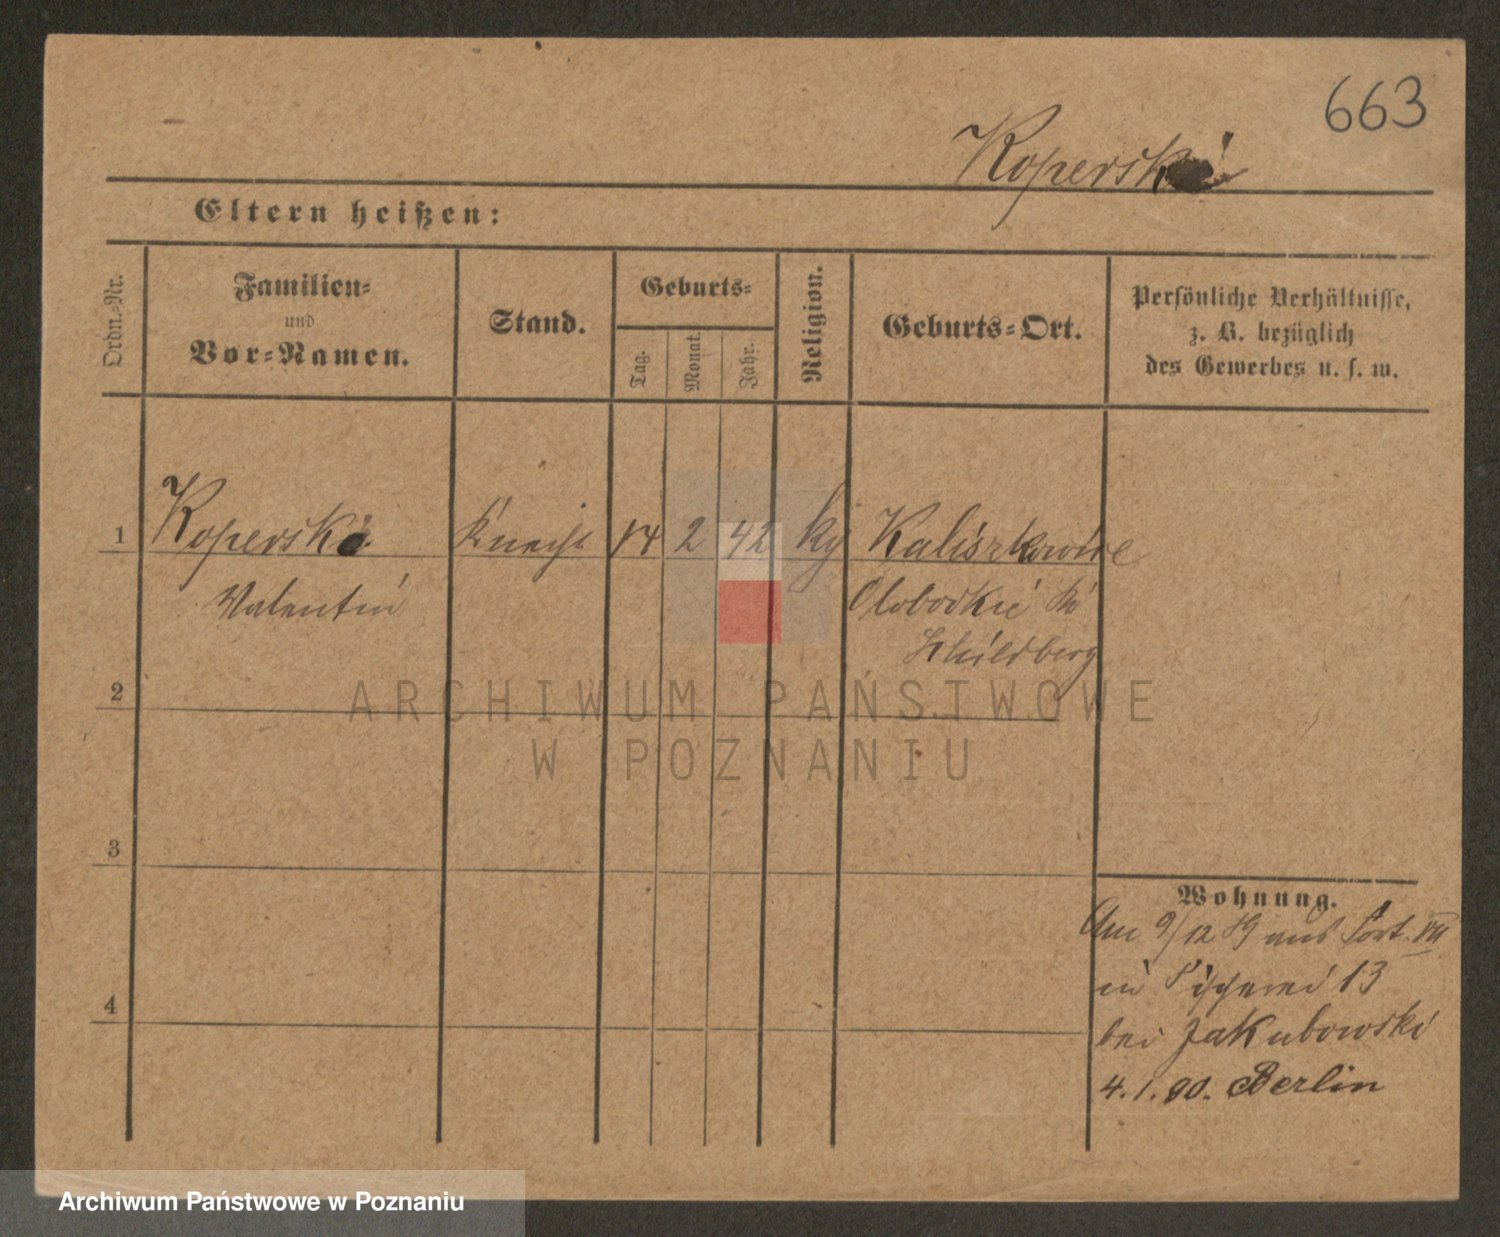 663
Koperski
Eltern heißen:
Ordn.-Nr.
Familien-
und
Vor-Namen.
Stand.
Geburts-
Tag.
Monat.
Jahr.
Religion.
Geburts-Ort.
Persönliche Verhältnisse,
z. B. bezüglich
des Gewerbes u. s. w.
1 Koperski Knecht 14 2 42 Kaliszkowice
Valentin Olobockie Kr
Schildberg
2
ARCHIWUM PAŃSTWOWE
W POZNANIU
3
Wohnung.
Am 9/12 89 aus Fort VIII
in Fischerei 13
4
bei Jakubowski
4.1.90. Berlin
Archiwum Państwowe w Poznaniu